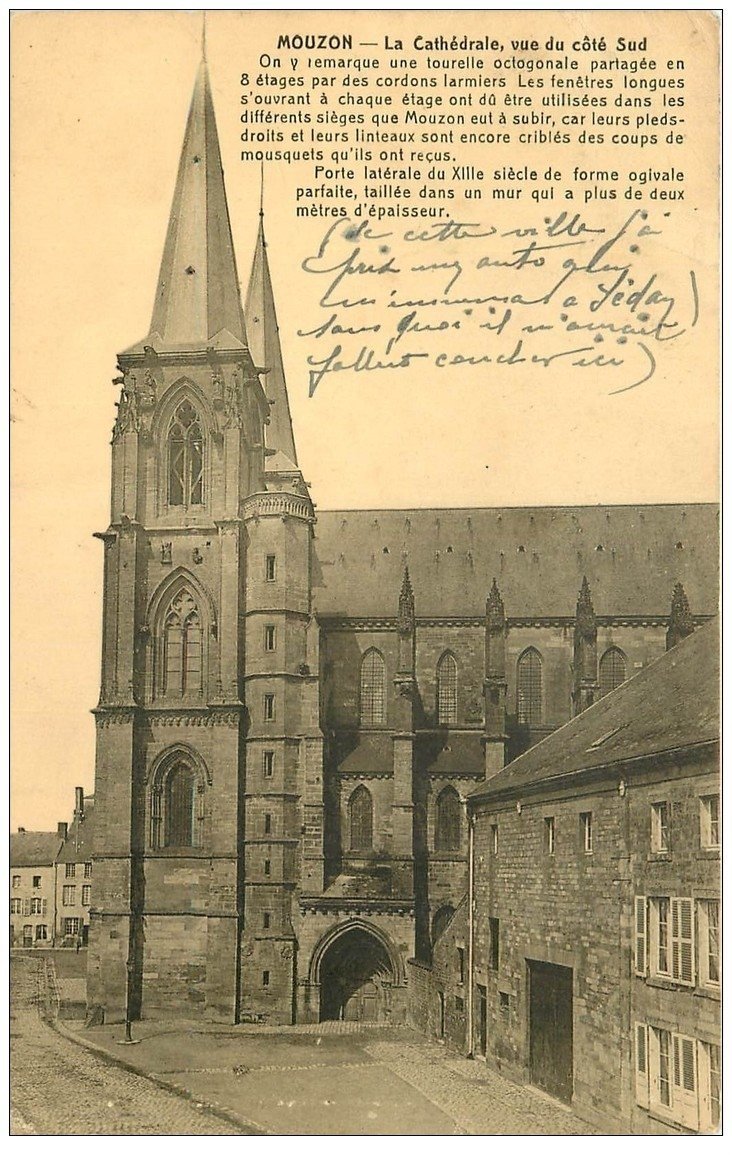 MOUZON — La Cathédrale, vue du côté Sud
On y remarque une tourelle octogonale partagée en
8 étages par des cordons larmiers Les fenêtres longues
s'ouvrant à chaque étage ont dû être utilisées dans les
différents sièges que Mouzon eut à subir, car leurs pieds-
droits et leurs linteaux sont encore criblés des coups de
mousquets qu'ils ont reçus.
Porte latérale du XIIIe siècle de forme ogivale
parfaite, taillée dans un mur qui a plus de deux
mètres d'épaisseur.
(de cette ville j'ai
pris un auto qui
a Sédan
sans quoi il m'aurait
fallut coucher ici)